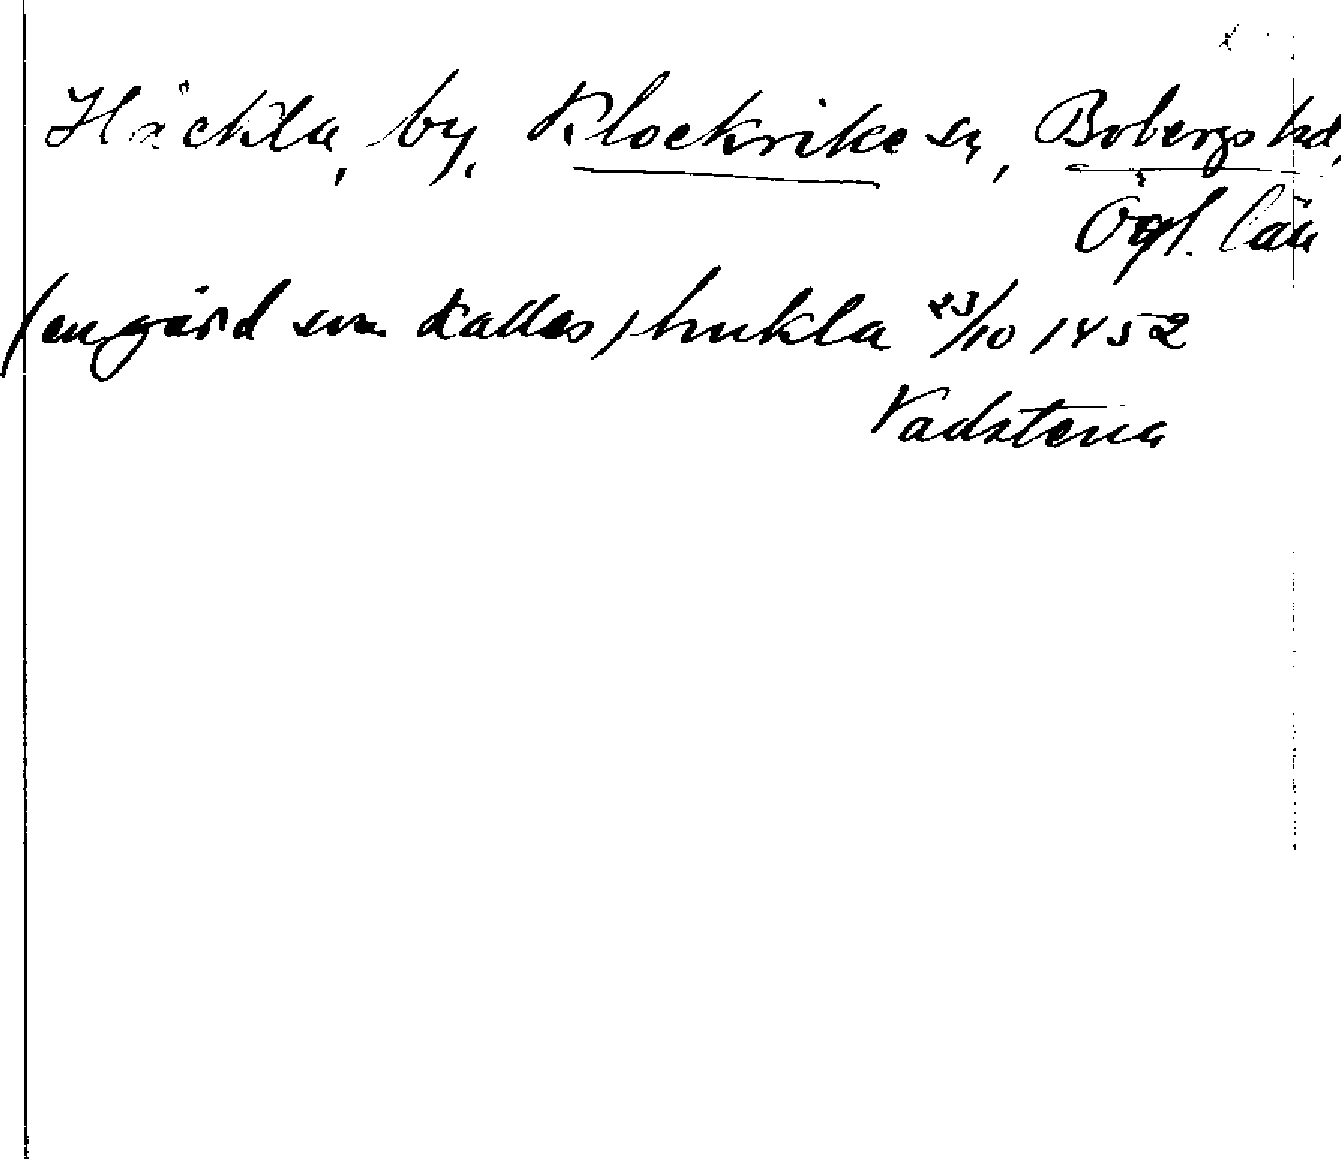 Häckla, by, Klockrike sn, Bobergs hd,
Ögl. län
(en gård som kallas) hukla 23/10 1452
Vadstena